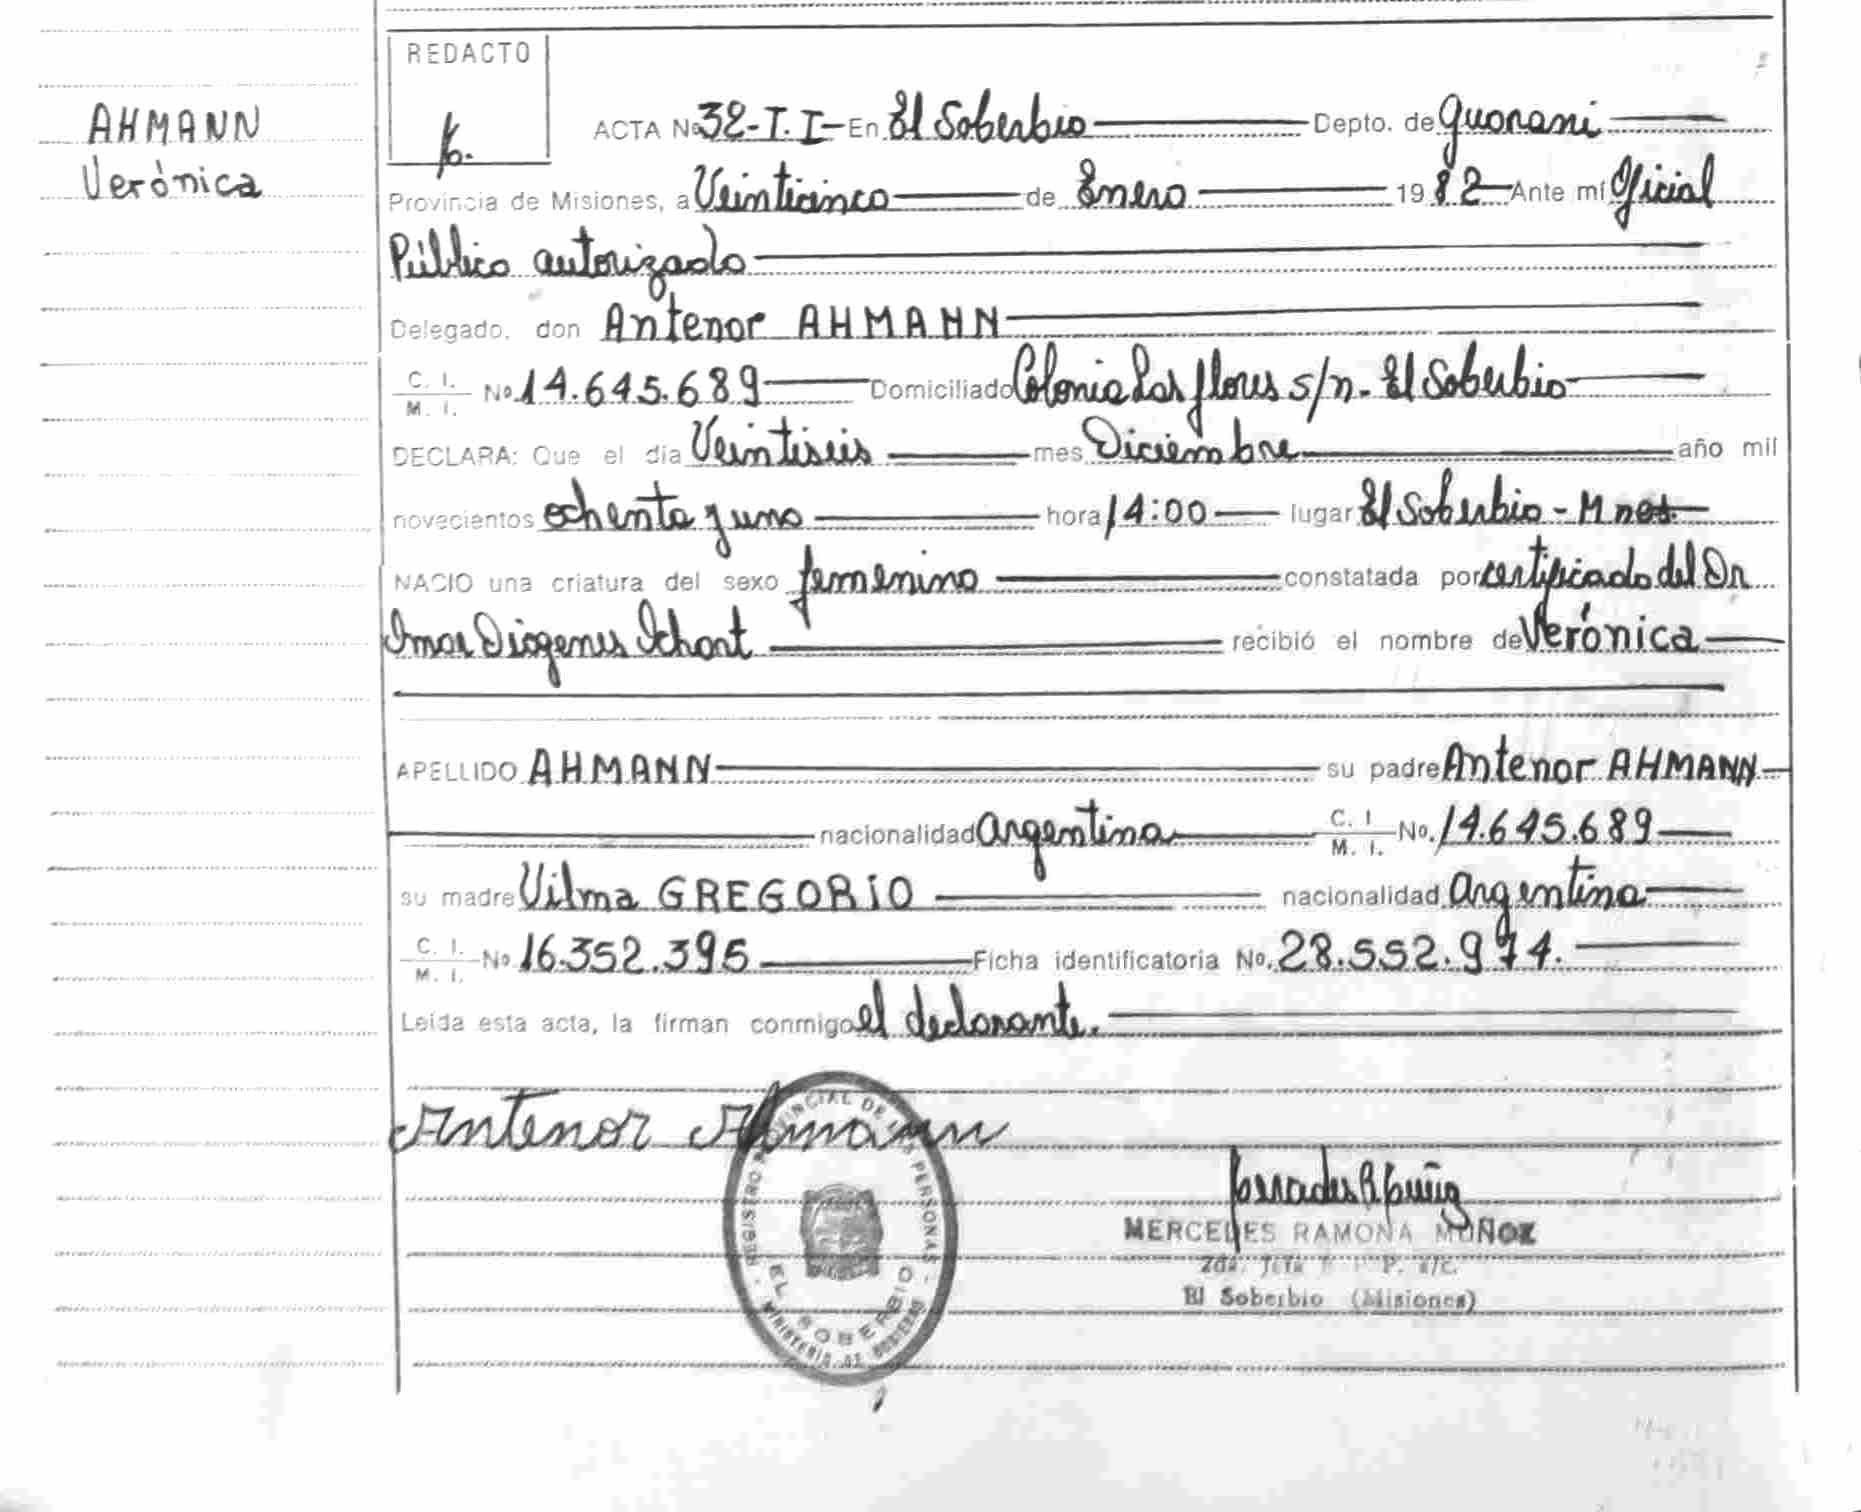 REDACTO
AHMANN
Verónica
ACTA No 32-T.I- En El Soberbio Depto. de Guarani
Provincia de Misiones, a Veinticinco de Enero 1982 Ante mí Oficial
Público autorizado
Delegado, don Antenor AHMANN
C. I. M. I. No. 14.645.689 Domiciliado Colonia Las flores s/n. El Soberbio
DECLARA: Que el día Veintiseis mes Diciembre año mil
novecientos ochenta y uno hora 14:00 lugar El Soberbio - Mnes
NACIO una criatura del sexo femenino constatada por certificado del Dr
Omar Diógenes recibió el nombre de Verónica
APELLIDO AHMANN su padre Antenor AHMANN
nacionalidad Argentina C. I. M. I. No. 14.645.689
su madre Vilma GREGORIO nacionalidad Argentina
C. I. M. I. No 16.352.395 Ficha identificatoria No. 28.552.974.
Leída esta acta, la firman conmigo el declarante.
Antenor Ahmann
REGISTRO PROVINCIAL DE LAS PERSONAS
EL SOBERBIO
MINISTERIO DE GOBIERNO
MERCEDES RAMONA MUÑOZ
2da. Jefa P. a/c.
El Soberbio (Misiones)